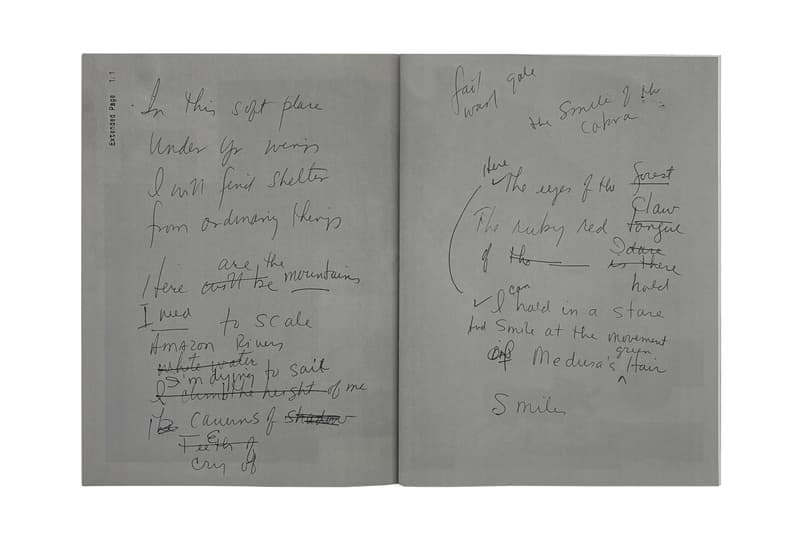 Extended Page 1.1
In this soft place
Under yr wings
I will find shelter
from ordinary things
are the
Here will be mountains
I need to scale
Amazon Rivers
white water
I'm dying to sail
I climb the height of me
The Caverns of shadow
Teeth of
cry of
sail
want gale
the smile of the
Cobra
Here
The eyes of the forest
Claw
The ruby red tongue
of the I dare
is there
hold
can
I hold in a stare
And smile at the movement
green
of Medusa's Hair
Smile